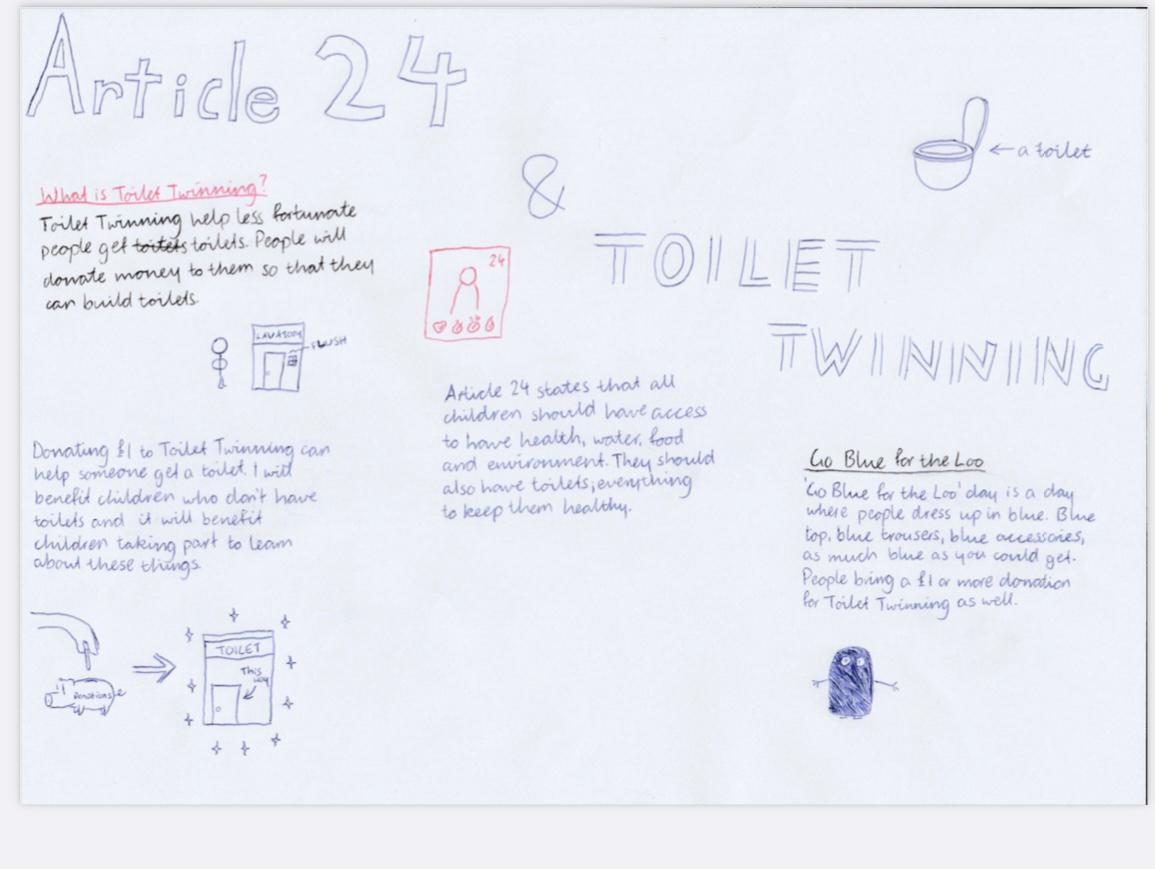 Article 24
&
TOILET
TWINNING
← a toilet
What is Toilet Twinning?
Toilet Twinning help less fortunate
people get toilets toilets. People will
donate money to them so that they
can build toilets.
LAVATORY
FLUSH
24
Donating £1 to Toilet Twinning can
help someone get a toilet. I will
benefit children who don't have
toilets and it will benefit
children taking part to learn
about these things.
Donations
TOILET
This
way
Article 24 states that all
children should have access
to have health, water, food
and environment. They should
also have toilets; everything
to keep them healthy.
Go Blue for the Loo
'Go Blue for the Loo' day is a day
where people dress up in blue. Blue
top, blue trousers, blue accessories,
as much blue as you could get.
People bring a £1 or more donation
for Toilet Twinning as well.